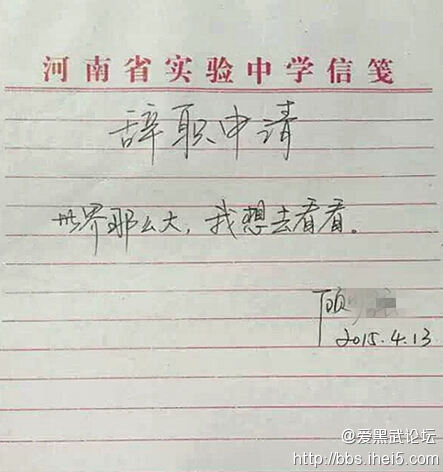 河南省实验中学信笺
辞职申请
世界那么大，我想去看看。
顾
2015.4.13
@爱黑武论坛
http://bbs.ihei5.com/